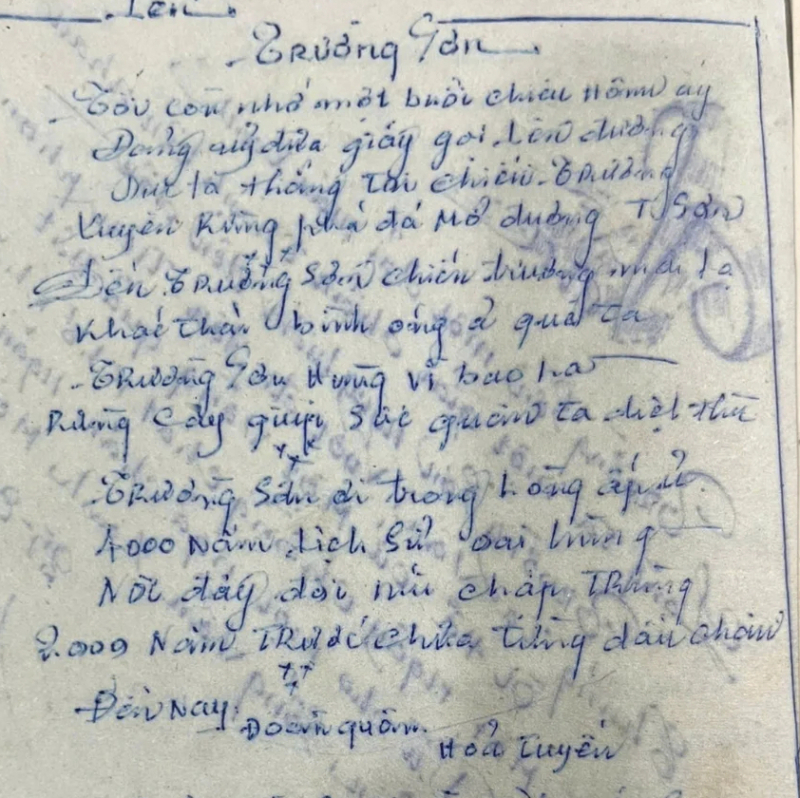 Lên
Trường Sơn
Tôi còn nhớ một buổi chiều hôm ấy
Đảng uỷ đưa giấy gọi lên đường
Dứt là thắng tới chiến Trường
Xuyên Rừng phá đá Mở đường T. Sơn
Đến Trường Sơn chiến trường mới lạ
Khác thái bình ong ả quê ta
Trường Sơn Hùng vĩ bao la
Rừng cây giúp sức quân ta diệt thù
Trường Sơn đi trong lòng ấp ủ
4000 Năm lịch sử oai hùng
Nơi đây đồi núi chập Trùng
2.000 Năm Trước chưa từng dấu chân
Đến Nay Đoàn quân
Hoả tuyến